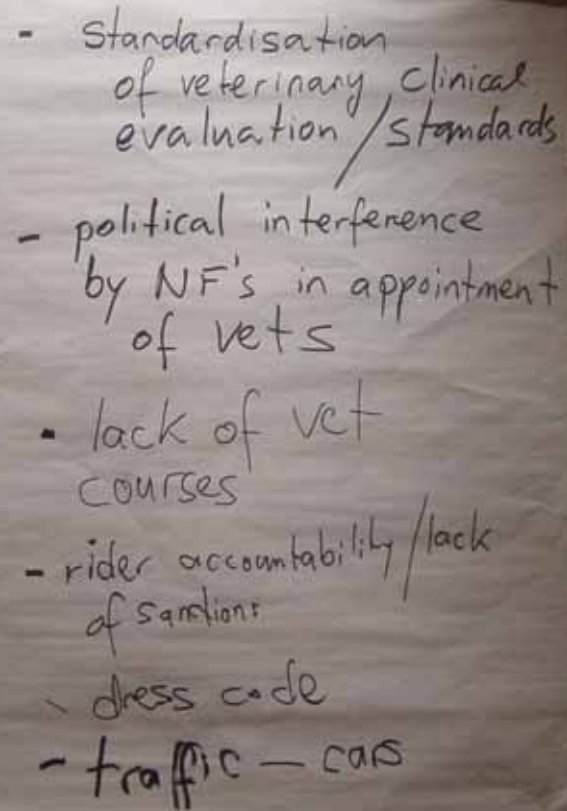 - Standardisation
of veterinary clinical
evaluation / standards
- political interference
by NF's in appointment
of vets
- lack of vet
courses
- rider accountability / lack
of sanctions
- dress code
- traffic - cars